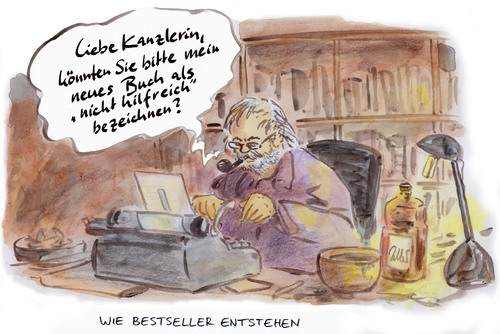 Liebe Kanzlerin,
könnten Sie bitte mein
neues Buch als
„nicht hilfreich“
bezeichnen?
WIE BESTSELLER ENTSTEHEN